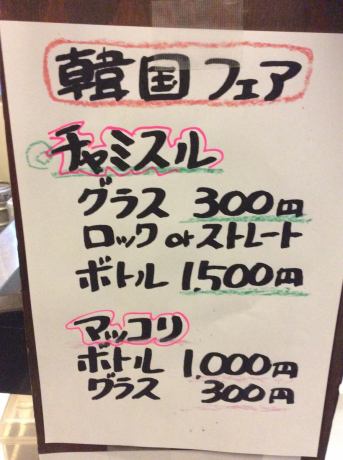 韓国フェア
チャミスル
グラス 300円
ロック or ストレート
ボトル 1,500円
マッコリ
ボトル 1,000円
グラス 300円